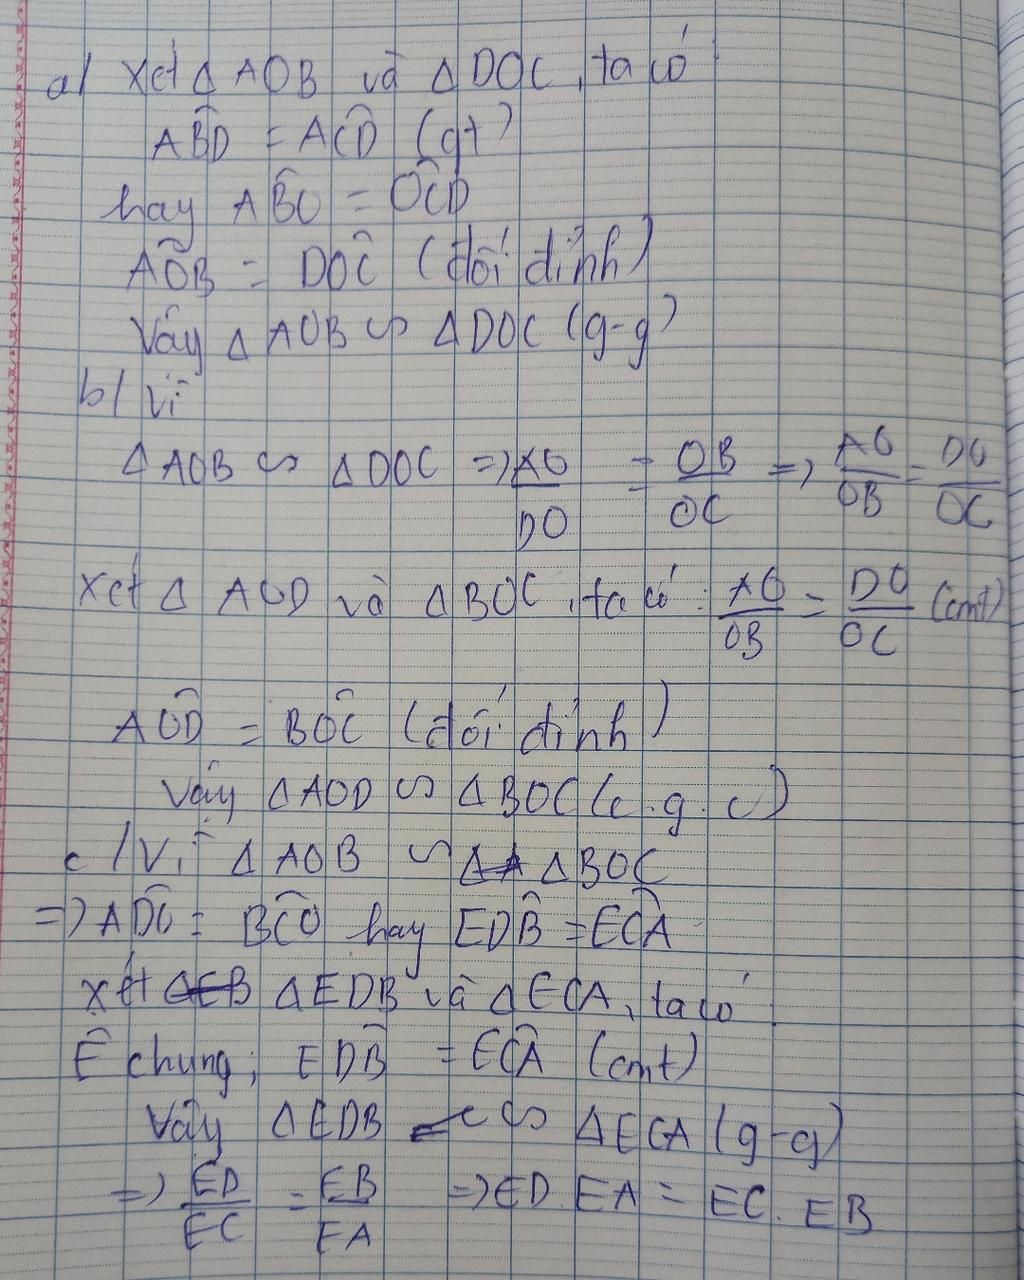 a/ Xét Δ AOB và Δ DOC, ta có:
AB̂D = AĈD (gt)
hay AB̂O = OĈD
AÔB = DÔC (đối đỉnh)
Vậy Δ AOB ∽ Δ DOC (g-g)
b/ Vì
Δ AOB ∽ Δ DOC => AO/DO = OB/OC => AO/OB = DO/OC
Xét Δ AOD và Δ BOC, ta có: AO/OB = DO/OC (cmt)
AÔD = BÔC (đối đỉnh)
Vậy Δ AOD ∽ Δ BOC (c.g.c)
c/ Vì Δ AOB ∽ Δ BOC
=> AD̂O = BĈO hay EDB̂ = EĈA
Xét Δ EDB và Δ ECA, ta có:
Ê chung; EDB̂ = EĈA (cmt)
Vậy Δ EDB ∽ Δ ECA (g-g)
=> ED/EC = EB/EA => ED. EA = EC. EB